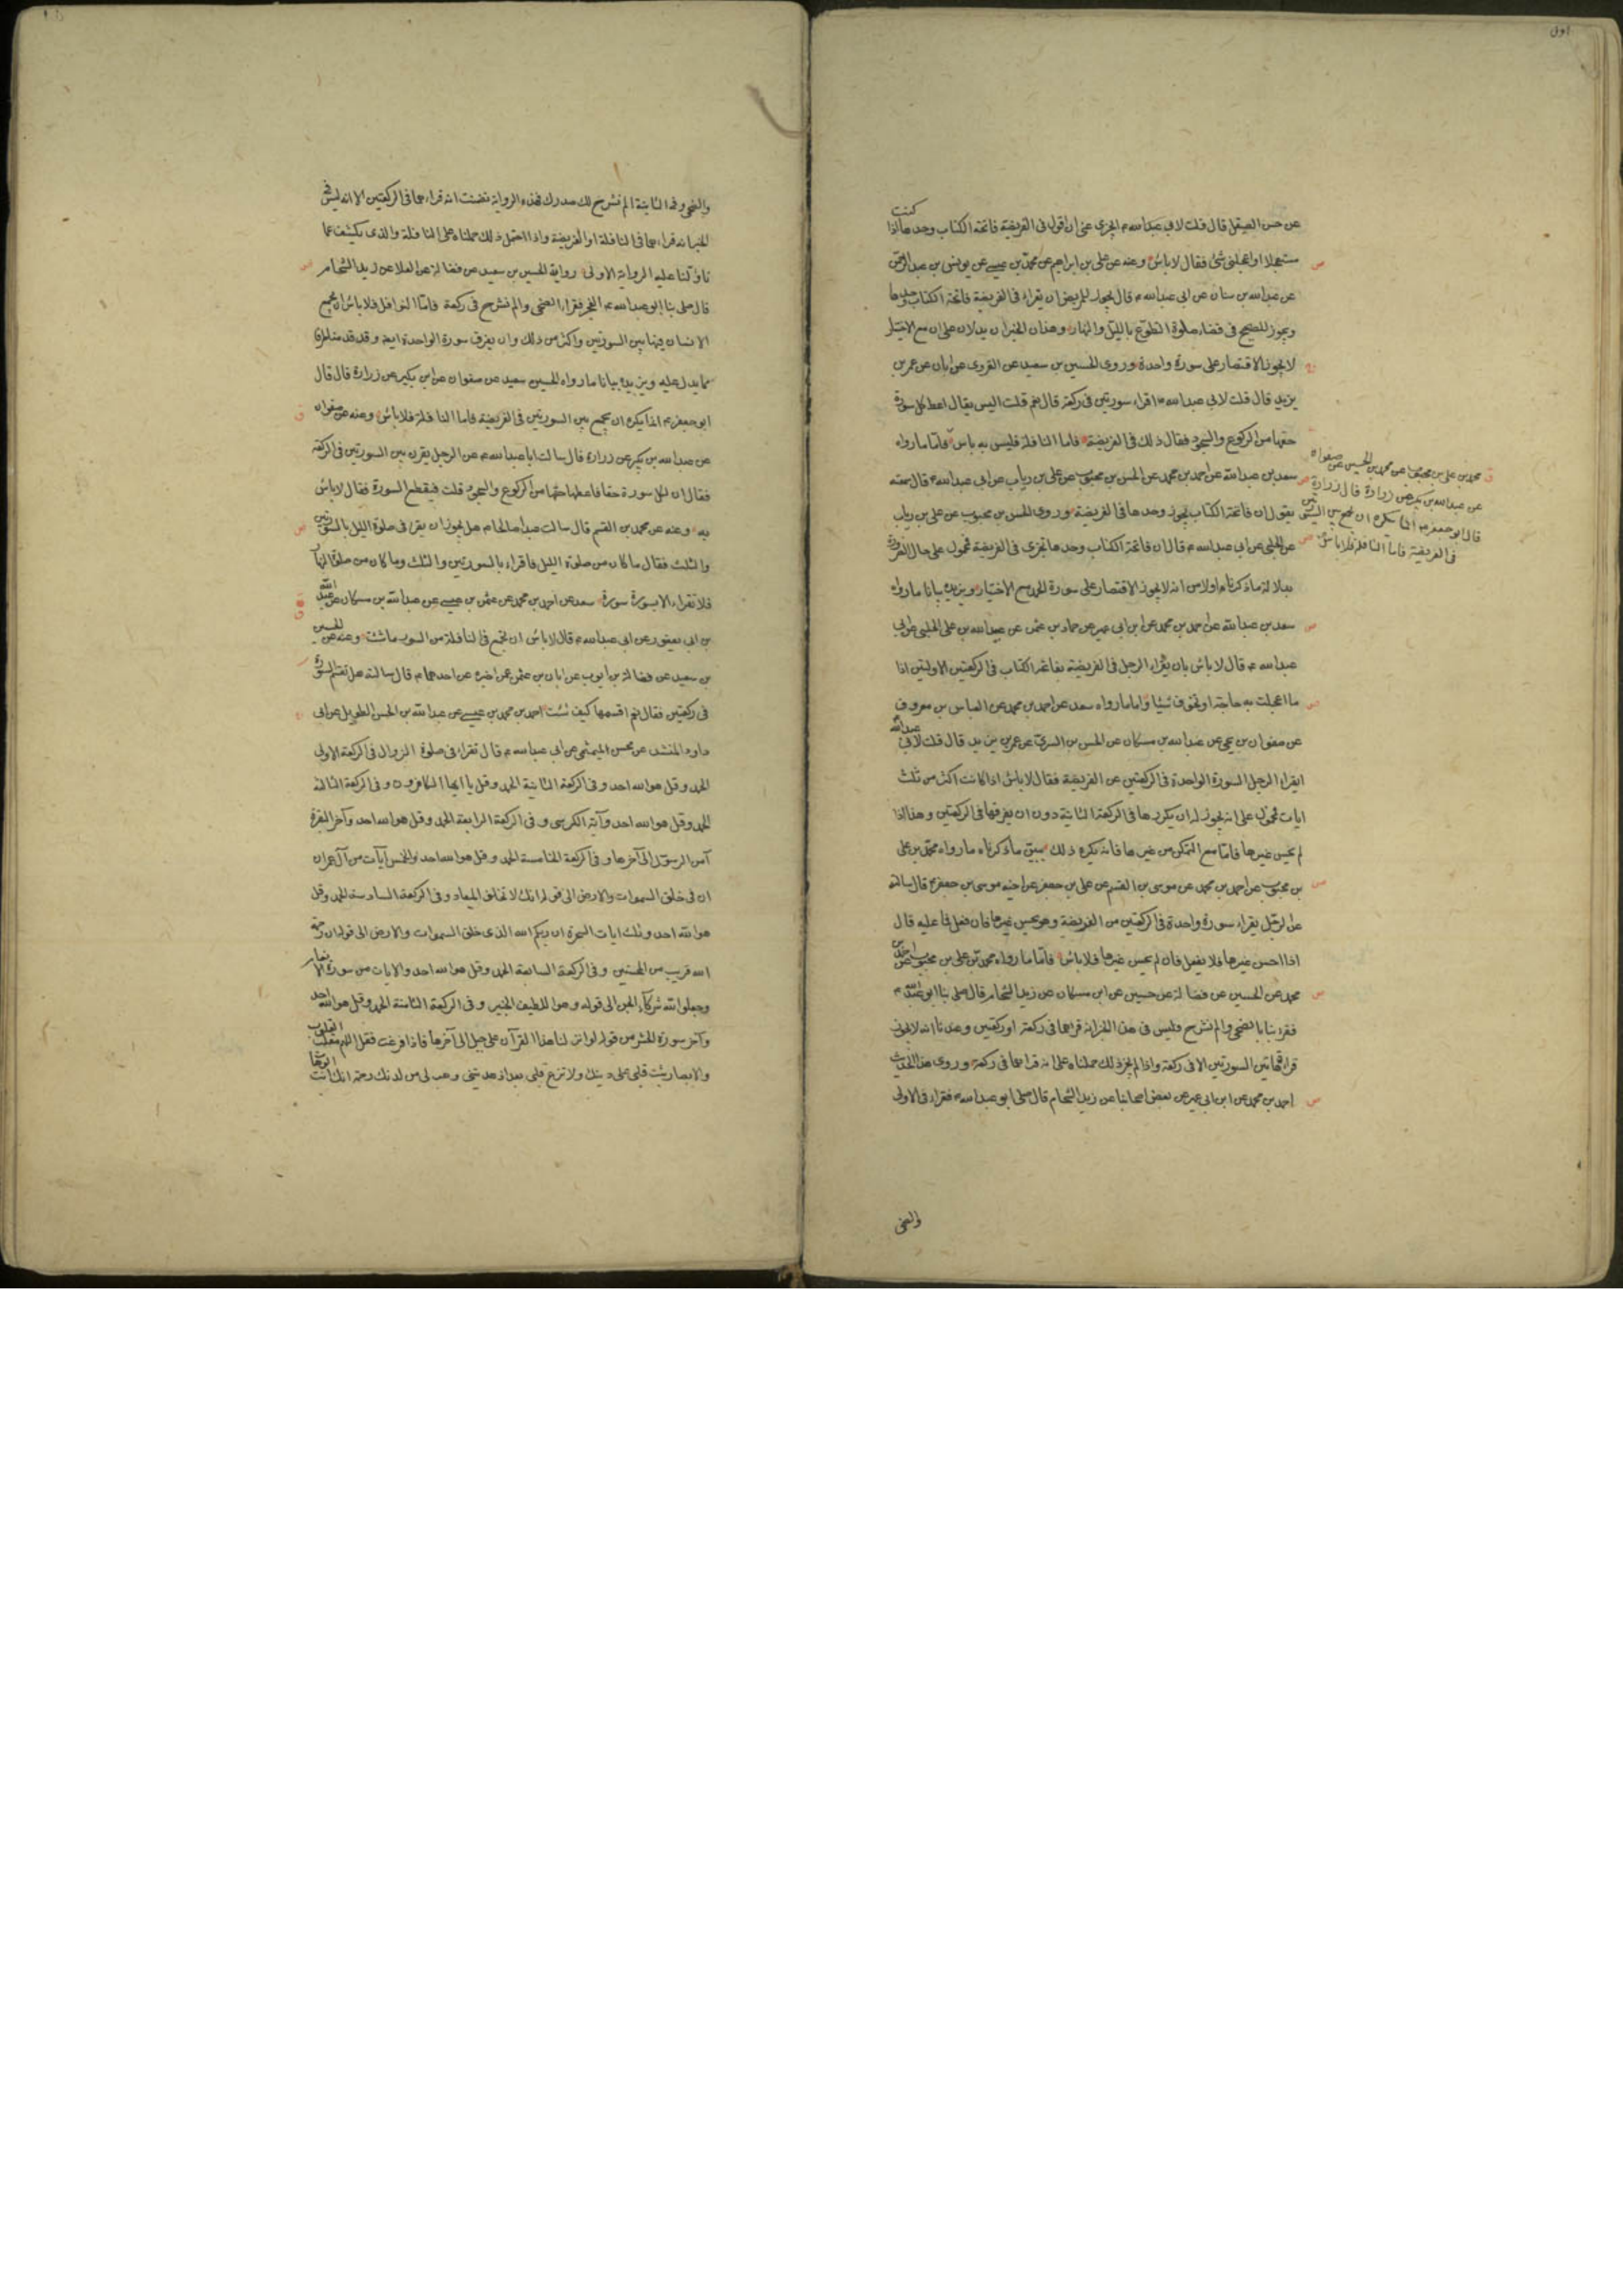 اول
عن حسن الصيقل قال قلت لابي عبدالله ع ايجزي عني ان اقول في الفريضة فاتحة الكتاب وحدها اذا كنت
مستعجلا او اعجلني شئ فقال لا باس وعنه عن علي بن ابراهيم عن محمد بن عيسى عن يونس بن عبدالرحمن
عن عبدالله بن سنان عن ابي عبدالله ع قال يجوز للمريض ان يقراء في الفريضة فاتحة الكتاب وحدها
ويجوز للصحيح في قضاء صلوة التطوع بالليل والنهار وهذان الخبران يدلان على ان مع الاختيار
لا يجوز الاقتصار على سورة واحدة وروى الحسين بن سعيد عن القروي عن ابان عن عمر بن
يزيد قال قلت لابي عبدالله ع اقراء سورتين في ركعة قال نعم قلت اليس يقال اعط كل سورة
حقها من الركوع والسجود فقال ذلك في الفريضة فاما النافلة فليس به باس فاما ما رواه
سعد بن عبدالله عن احمد بن محمد عن الحسن بن محبوب عن علي بن رياب عن ابي عبدالله ع قال سمعته
يقول ان فاتحة الكتاب تجوز وحدها في الفريضة وروى الحسن بن محبوب عن علي بن رياب
عن الحلبي عن ابي عبدالله ع قال ان فاتحة الكتاب وحدها تجزي في الفريضة فمحمول على حال الضرورة
بدلالة ما ذكرناه اولا من انه لا يجوز الاقتصار على سورة الحمد مع الاختيار ويزيده بيانا ما رواه
سعد بن عبدالله عن احمد بن محمد عن ابن ابي عمير عن حماد بن عثمن عن عبيدالله بن علي الحلبي عن ابي
عبدالله ع قال لا باس بان يقراء الرجل في الفريضة بفاتحة الكتاب في الركعتين الاولتين اذا
ما اعجلت به حاجة او تخوف شيئا واما ما رواه سعد عن احمد بن محمد عن العباس بن معروف
عن صفوان بن يحيى عن عبدالله بن مسكان عن الحسن بن السري عن عمر بن يزيد قال قلت لابي عبدالله
ايقراء الرجل السورة الواحدة في الركعتين من الفريضة فقال لا باس اذا كانت اكثر من ثلث
ايات فمحمول على انه يجوز له ان يكررها في الركعة الثانية دون ان يفرقها في الركعتين وهذا اذا
لم يحسن غيرها فاما مع التمكن من غيرها فانه يكره ذلك يبين ما ذكرناه ما رواه محمد بن علي
بن محبوب عن احمد بن محمد عن موسى بن القسم عن علي بن جعفر عن اخيه موسى بن جعفر ع قال سالته
عن الرجل يقراء سورة واحدة في الركعتين من الفريضة وهو يحسن غيرها فان فعل فما عليه قال
اذا احسن غيرها فلا يفعل فان لم يحسن غيرها فلا باس فاما ما رواه محمد بن علي بن محبوب عن احمد بن
محمد عن الحسين عن فضالة عن حسين عن ابن مسكان عن زيد الشحام قال صلى بنا ابو عبدالله ع
فقرا بنا بالضحى والم نشرح فليس في هذا الخبر انه قراهما في ركعة او ركعتين وعندنا انه لا يجوز
قراءة هاتين السورتين الا في ركعة واذا لم يجز ذلك حملناه على انه قراهما في ركعة وروى هذا الحديث
احمد بن محمد عن ابن ابي عمير عن بعض اصحابنا عن زيد الشحام قال صلى ابو عبدالله ع فقراء في الاولى
والضحى
محمد بن علي بن محبوب عن محمد بن الحسين عن صفوان
عن عبدالله بن بكير عن زرارة قال زرارة
قال ابو جعفر ع انما يكره ان تجمع بين السورتين
في الفريضة فاما النافلة فلا باس
والضحى وفي الثانية الم نشرح لك صدرك فهذه الرواية تضمنت انه قراءهما في الركعتين الا انه ليس في
الخبر انه قراءهما في النافلة او الفريضة واذا احتمل ذلك حملناه على النافلة والذي يكشف عما
تاولنا عليه الرواية الاولى رواية الحسين بن سعيد عن فضالة عن العلا عن زيد الشحام
قال صلى بنا ابو عبدالله ع الفجر فقراء الضحى والم نشرح في ركعة فاما النوافل فلا باس ان يجمع
الانسان فيها بين السورتين واكثر من ذلك وان يفرق سورة الواحدة ايضا وقد قدمنا طرفا
مما يدل عليه ويزيده بيانا ما رواه الحسين سعيد عن صفوان عن ابن بكير عن زرارة قال قال
ابو جعفر ع انما يكره ان يجمع بين السورتين في الفريضة فاما النافلة فلا باس وعنه عن صفوان
عن عبدالله بن بكير عن زرارة قال سالت ابا عبدالله ع عن الرجل يقرن بين السورتين في الركعة
فقال ان لكل سورة حقا فاعطها حقها من الركوع والسجود قلت فيقطع السورة فقال لا باس
به وعنه عن محمد بن القسم قال سالت عبدا صالحا ع هل يجوز ان يقرا في صلوة الليل بالسورتين
والثلث فقال ما كان من صلوة الليل فاقراء بالسورتين والثلث وما كان من صلوة النهار
فلا تقراء الا بسورة سورة سعد عن احمد بن محمد عن عثمن بن عيسى عن عبدالله بن مسكان عن عبدالله
بن ابي يعفور عن ابي عبدالله ع قال لا باس ان تجمع في النافلة من السور ما شئت وعنه عن الحسين
بن سعيد عن فضالة بن ايوب عن ابان بن عثمن عمن اخبره عن احدهما ع قال سالته هل تقسم السورة
في ركعتين فقال نعم اقسمها كيف شئت احمد بن محمد بن عيسى عن عبدالله بن الحسن الطويل عن ابي
داود المنشد عن محسن الميثمي عن ابي عبدالله ع قال تقراء في صلوة الزوال في الركعة الاولى
الحمد وقل هو الله احد وفي الركعة الثانية الحمد وقل يا ايها الكافرون وفي الركعة الثالثة
الحمد وقل هو الله احد وآية الكرسي وفي الركعة الرابعة الحمد وقل هو الله احد وآخر البقرة
آمن الرسول الى آخرها وفي الركعة الخامسة الحمد وقل هو الله احد والخمس آيات من آل عمران
ان في خلق السموات والارض الى قوله انك لا تخلف الميعاد وفي الركعة السادسة الحمد وقل
هو الله احد وثلث ايات السخرة ان ربكم الله الذي خلق السموات والارض الى قوله ان رحمة
الله قريب من المحسنين وفي الركعة السابعة الحمد وقل هو الله احد والايات من سورة الانعام
وجعلوا لله شركاء الجن الى قوله وهو اللطيف الخبير وفي الركعة الثامنة الحمد وقل هو الله احد
وآخر سورة الحشر من قوله لو انزلنا هذا القرآن على جبل الى آخرها فاذا فرغت فقل اللهم مقلب القلوب
والابصار ثبت قلبي على دينك ولا تزغ قلبي بعد اذ هديتني وهب لي من لدنك رحمة انك انت الوهاب